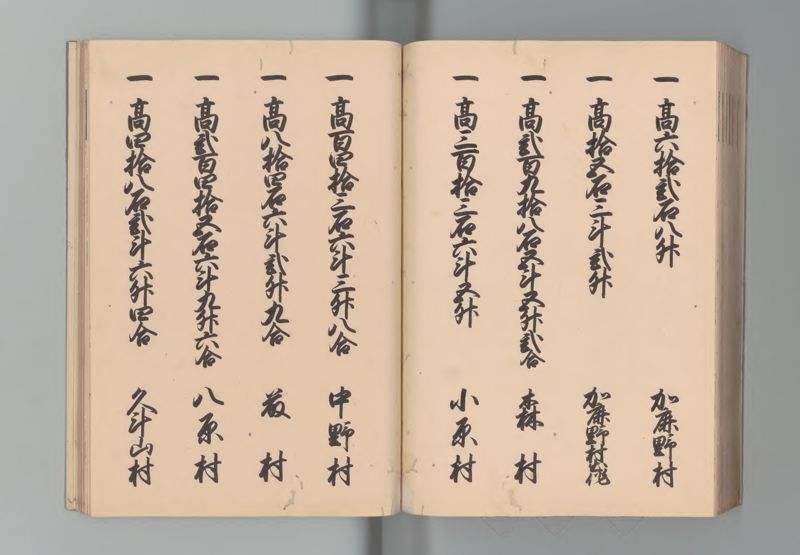 一 高六拾弐石八升 加麻野村
一 高拾五石三斗弐升 加麻野村
一 高弐百九拾八石五斗五升弐合 森村
一 高三百拾三石六斗五升 小原村
一 高百四拾三石六斗三升八合 中野村
一 高八拾四石六斗弐升九合 村
一 高弐百四拾五石六斗九升六合 八原村
一 高四拾八石弐斗六升四合 久斗山村